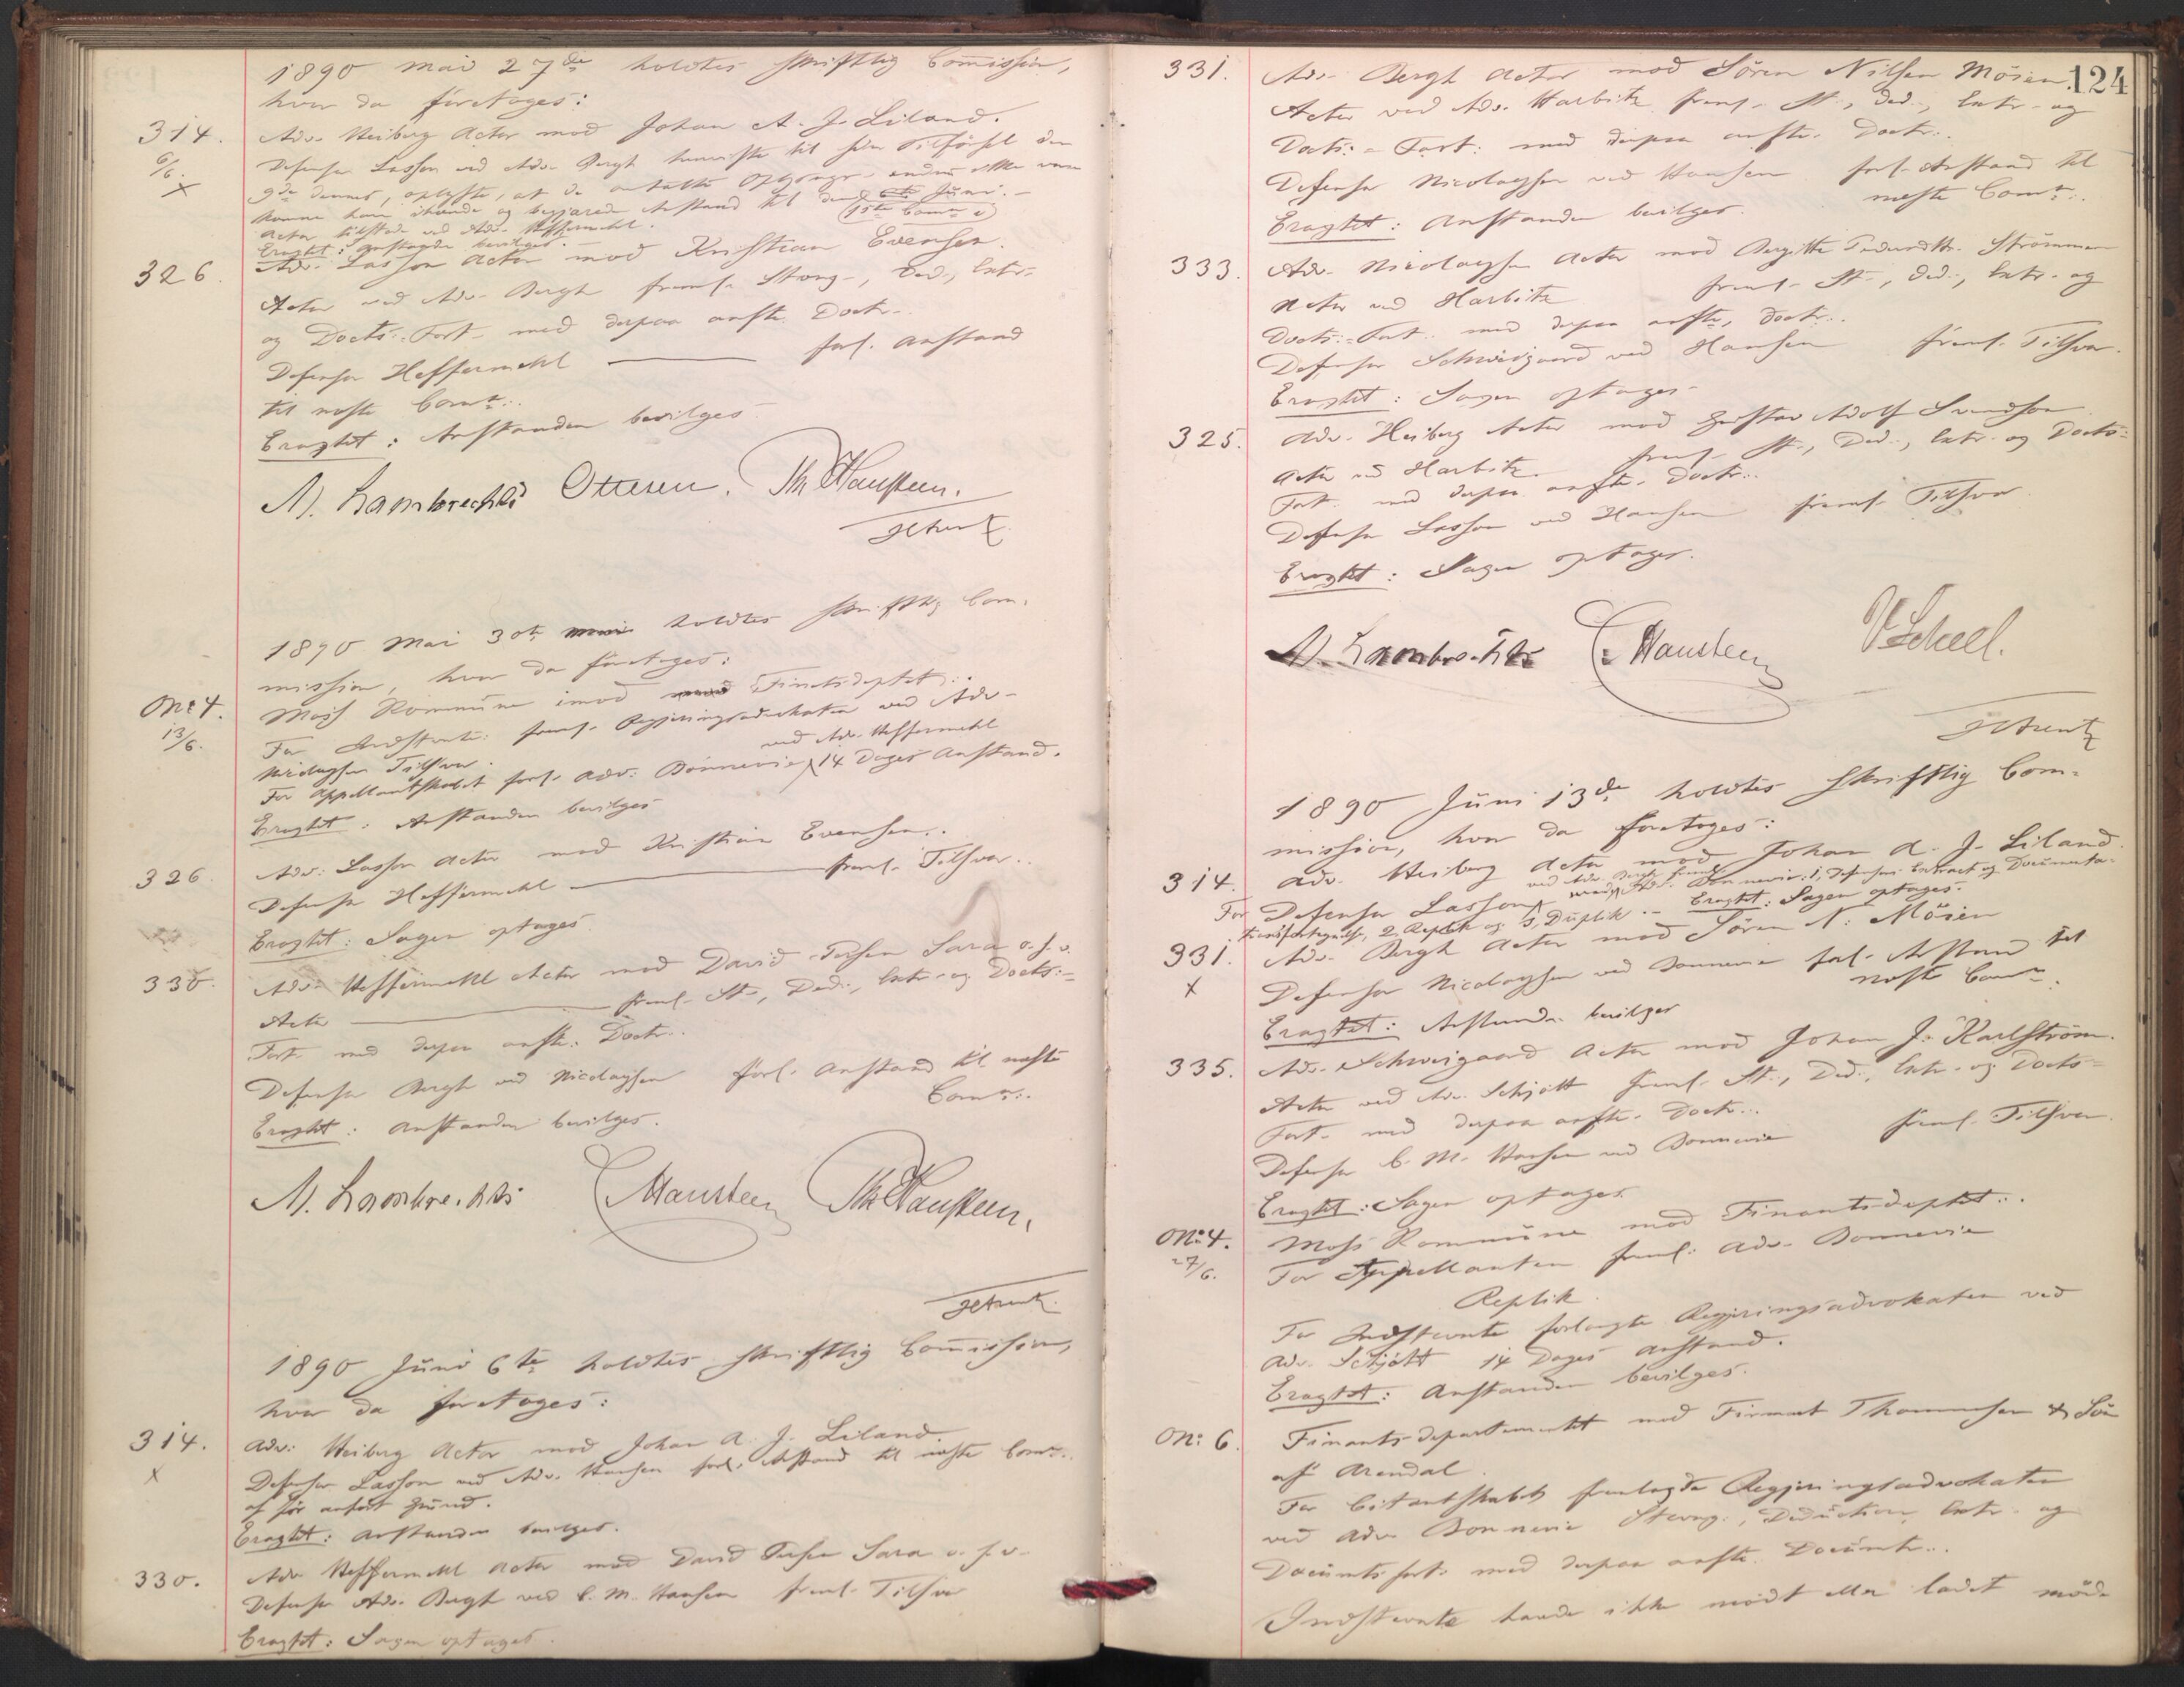 1890 Mai 27de holdtes skriftlig Com̄ission,
hvor da foretoges:
314. Adv. Heiberg Actor mod Johan A. J. Liland.
6/6. Defensor Lasson ved Adv. Bergh henviste til sin Tilførsel den
X 9de dennes, oplyste, at de omtalte endnu ikke var
ham ihænde og begjærede Anstand til den 6te Juni.
(1ste Comn i)
Actor tilstede ved Adv. Heffermehl.
Eragtet: Anstanden bevilges.
326. Adv. Lasson Actor mod Kristian Evensen.
Actor ved Adv. Bergh freml. Stevng., Ded., Extr.
og Docts.-Fort. med derpaa anfte. Doctr..
Defensor Heffermehl — forl. Anstand
til næste Comn..
Eragtet: Anstanden bevilges
M. Lambrechts Ottesen. Th. Hansteen.
1890 Mai 30te holdtes skriftlig Com.
mission, hvor da foretoges:
No: 4. Moss Kommune imod Finantsdeptet..
13/6. For Indstevnte freml. Regjeringsadvokaten ved Adv.
Nicolaysen Tilsvar.
ved Adv. Heffermehl
For Appellantskabet forl. Adv. Bonnevie 14 Dages Anstand.
Eragtet: Anstanden bevilges
326. Adv. Lasson Actor mod Kristian Evensen..
Defensor Heffermehl — freml. Tilsvar..
Eragtet: Sagen optages.
330. Adv. Heffermehl Actor mod David Persen Sara o. s. v.
Actor — freml. St., Ded., Extr. og Docts.-
Fort. med derpaa anfte. Doctr..
Defensor Bergh ved Nicolaysen forl. Anstand til næste
Comn..
Eragtet: Anstanden bevilges.
M. Lambrechts C Hansteen Th. Hansteen.
1890 Juni 6te holdtes skriftlig Com̄ission,
hvor da foretoges:
314. Adv. Heiberg Actor mod Johan A. J. Liland.
X Defensor Lasson ved Adv. Hansen forl. Anstand til næste Comn..
af før anført Grund.
Eragtet: Anstanden bevilges.
330. Adv. Heffermehl Actor mod David Persen Sara o. s. v.
Defensor Adv. Bergh ved C. M. Hansen freml. Tilsvar
Eragtet: Sagen optages.
124
331. Adv. Bergh Actor mod Sören Nilsen Mösien.
Actor ved Adv. Harbitz freml. St., Ded., Extr. og
Docts.-Fort. med derpaa anfte. Doctr..
Defensor Nicolaysen ved Hansen forl. Anstand til
næste Comn..
Eragtet: Anstanden bevilges.
333. Adv. Nicolaysen Actor mod Bergitte Strömmen
Actor ved Harbitz freml. St., Ded., Extr. og
Docts.-Fort. med derpaa anfte. Doctr..
Defensor Schweigaard ved Hansen freml. Tilsvar.
Eragtet: Sagen optages
325. Adv. Heiberg Actor mod Gustav Adolf Svendsen
Actor ved Harbitz freml. St., Ded., Extr. og Docts.-
Fort. med derpaa anfte. Doctr..
Defensor Lasson ved Hansen freml. Tilsvar
Eragtet: Sagen optages.
M. Lambrechts C Hansteen V Scheel.
1890 Juni 13de holdtes skriftlig Com-
mission, hvor da foretoges:
314. Adv. Heiberg Actor mod Johan A. J. Liland.
ved Adv. Bergh freml.
For Defensor Lasson Adv. Bonnevie: 1, Defensors Extract og Documenta-
tionsfortegnelse, 2 Replik og 3, Duplik. – Eragtet: Sagen optages.
331. Adv. Bergh Actor mod Sören N. Mösien
X Defensor Nicolaysen ved Bonnevie forl. Anstand til
næste Comn.
Eragtet: Anstanden bevilges
335. Adv. Schweigaard Actor mod Johan J. Karlström.
Actor ved Adv. Schjött freml. St., Ded., Extr. og Docts-
Fort. med derpaa anfte. Doctr..
Defensor C. M. Hansen ved Bonnevie freml. Tilsvar.
Eragtet: Sagen optages
No: 4. Moss Kommune mod Finantsdeptet..
27/6. For Appellanten freml. Adv. Bonnevie
Replik.
For Indstevnte forlangte Regjeringsadvokaten ved
Adv. Schjött 14 Dages Anstand.
Eragtet: Anstanden bevilges.
No: 6. Finants-departementet mod Firmaet Thommesen & Sön
af Arendal.
For Citantskabet fremlagde Regjeringsadvokaten
ved Adv. Bonnevie Stevng., Deduction, Extr. og
Documts.fort. med derpaa anfte. Documtr..
Indstevnte havde ikke mödt eller ladet möde